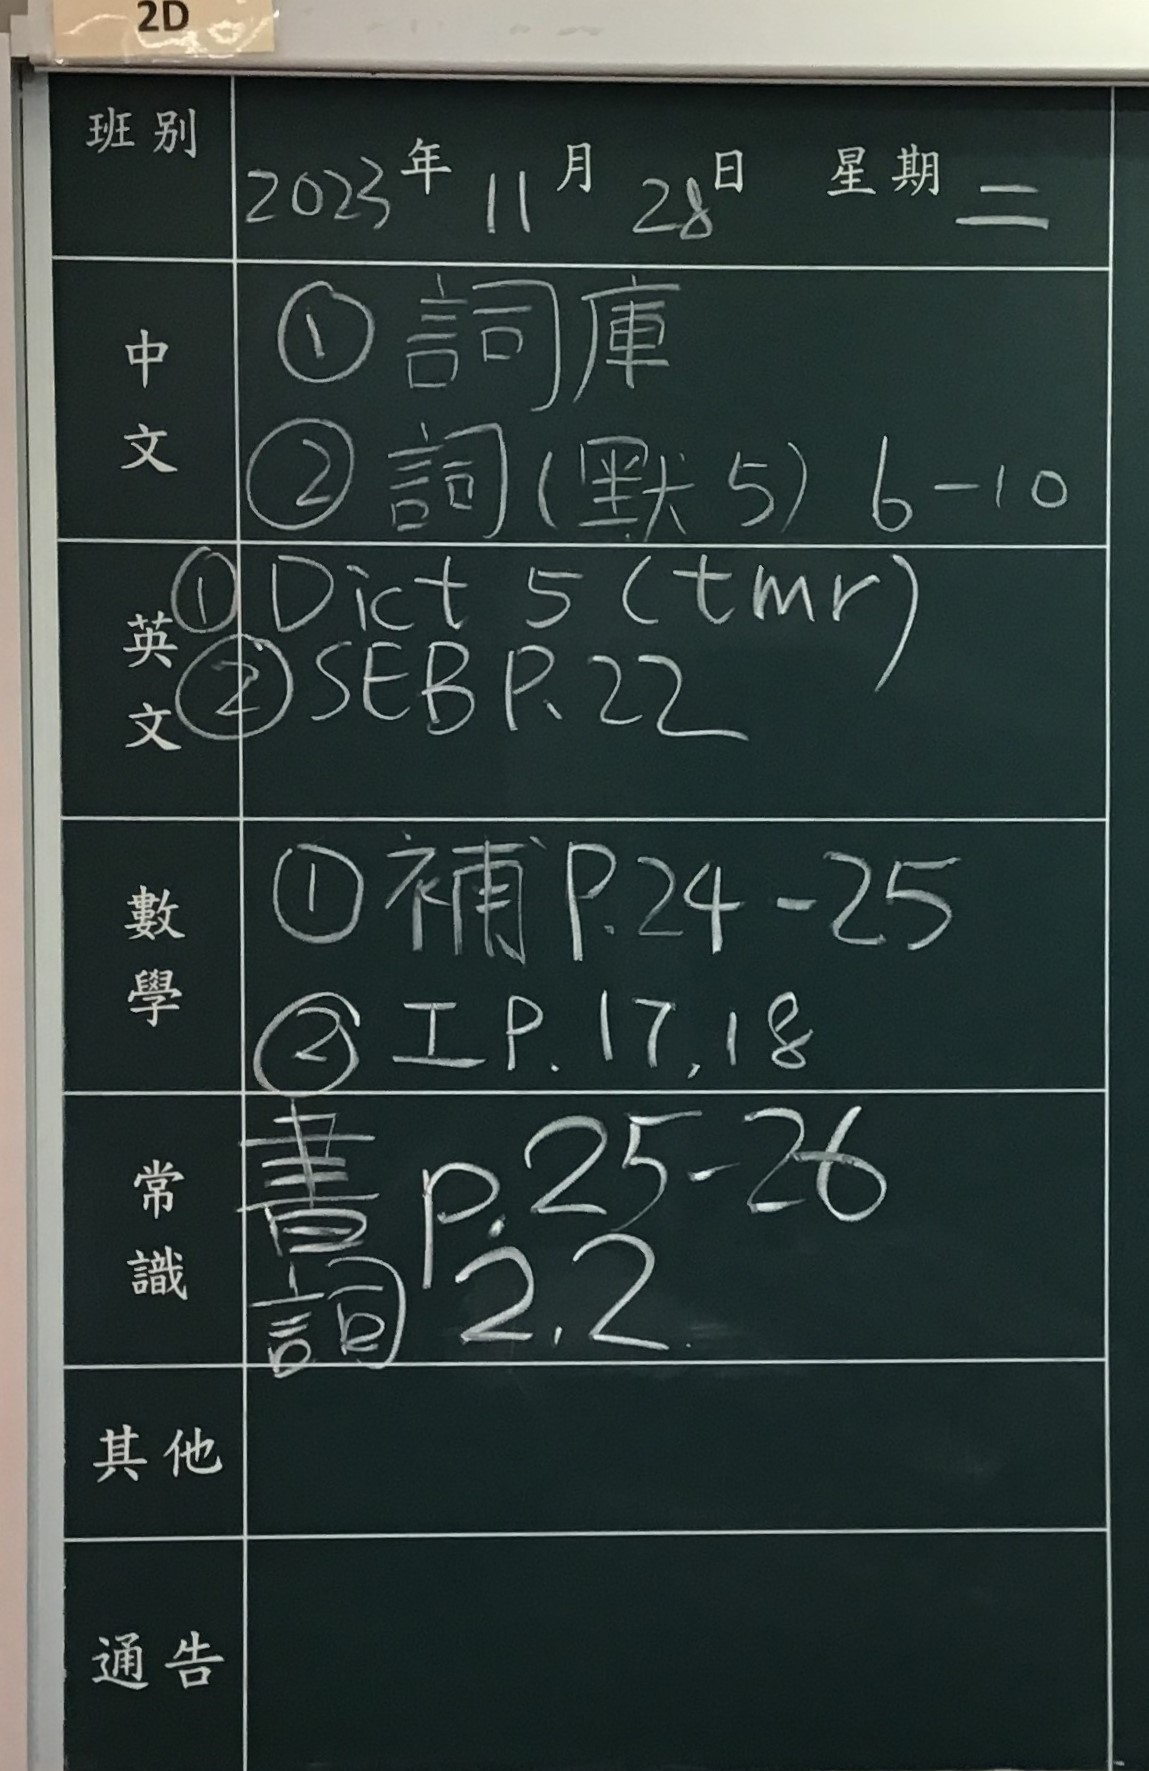 2D
班別 2023年 11月 28日 星期二
中文
① 詞庫
② 詞(默5) 6-10
英文
① Dict 5 (tmr)
② SEB P.22
數學
① 補 P.24-25
② 工 P.17,18
常識
書 p.25-26
詞 2.2
其他
通告